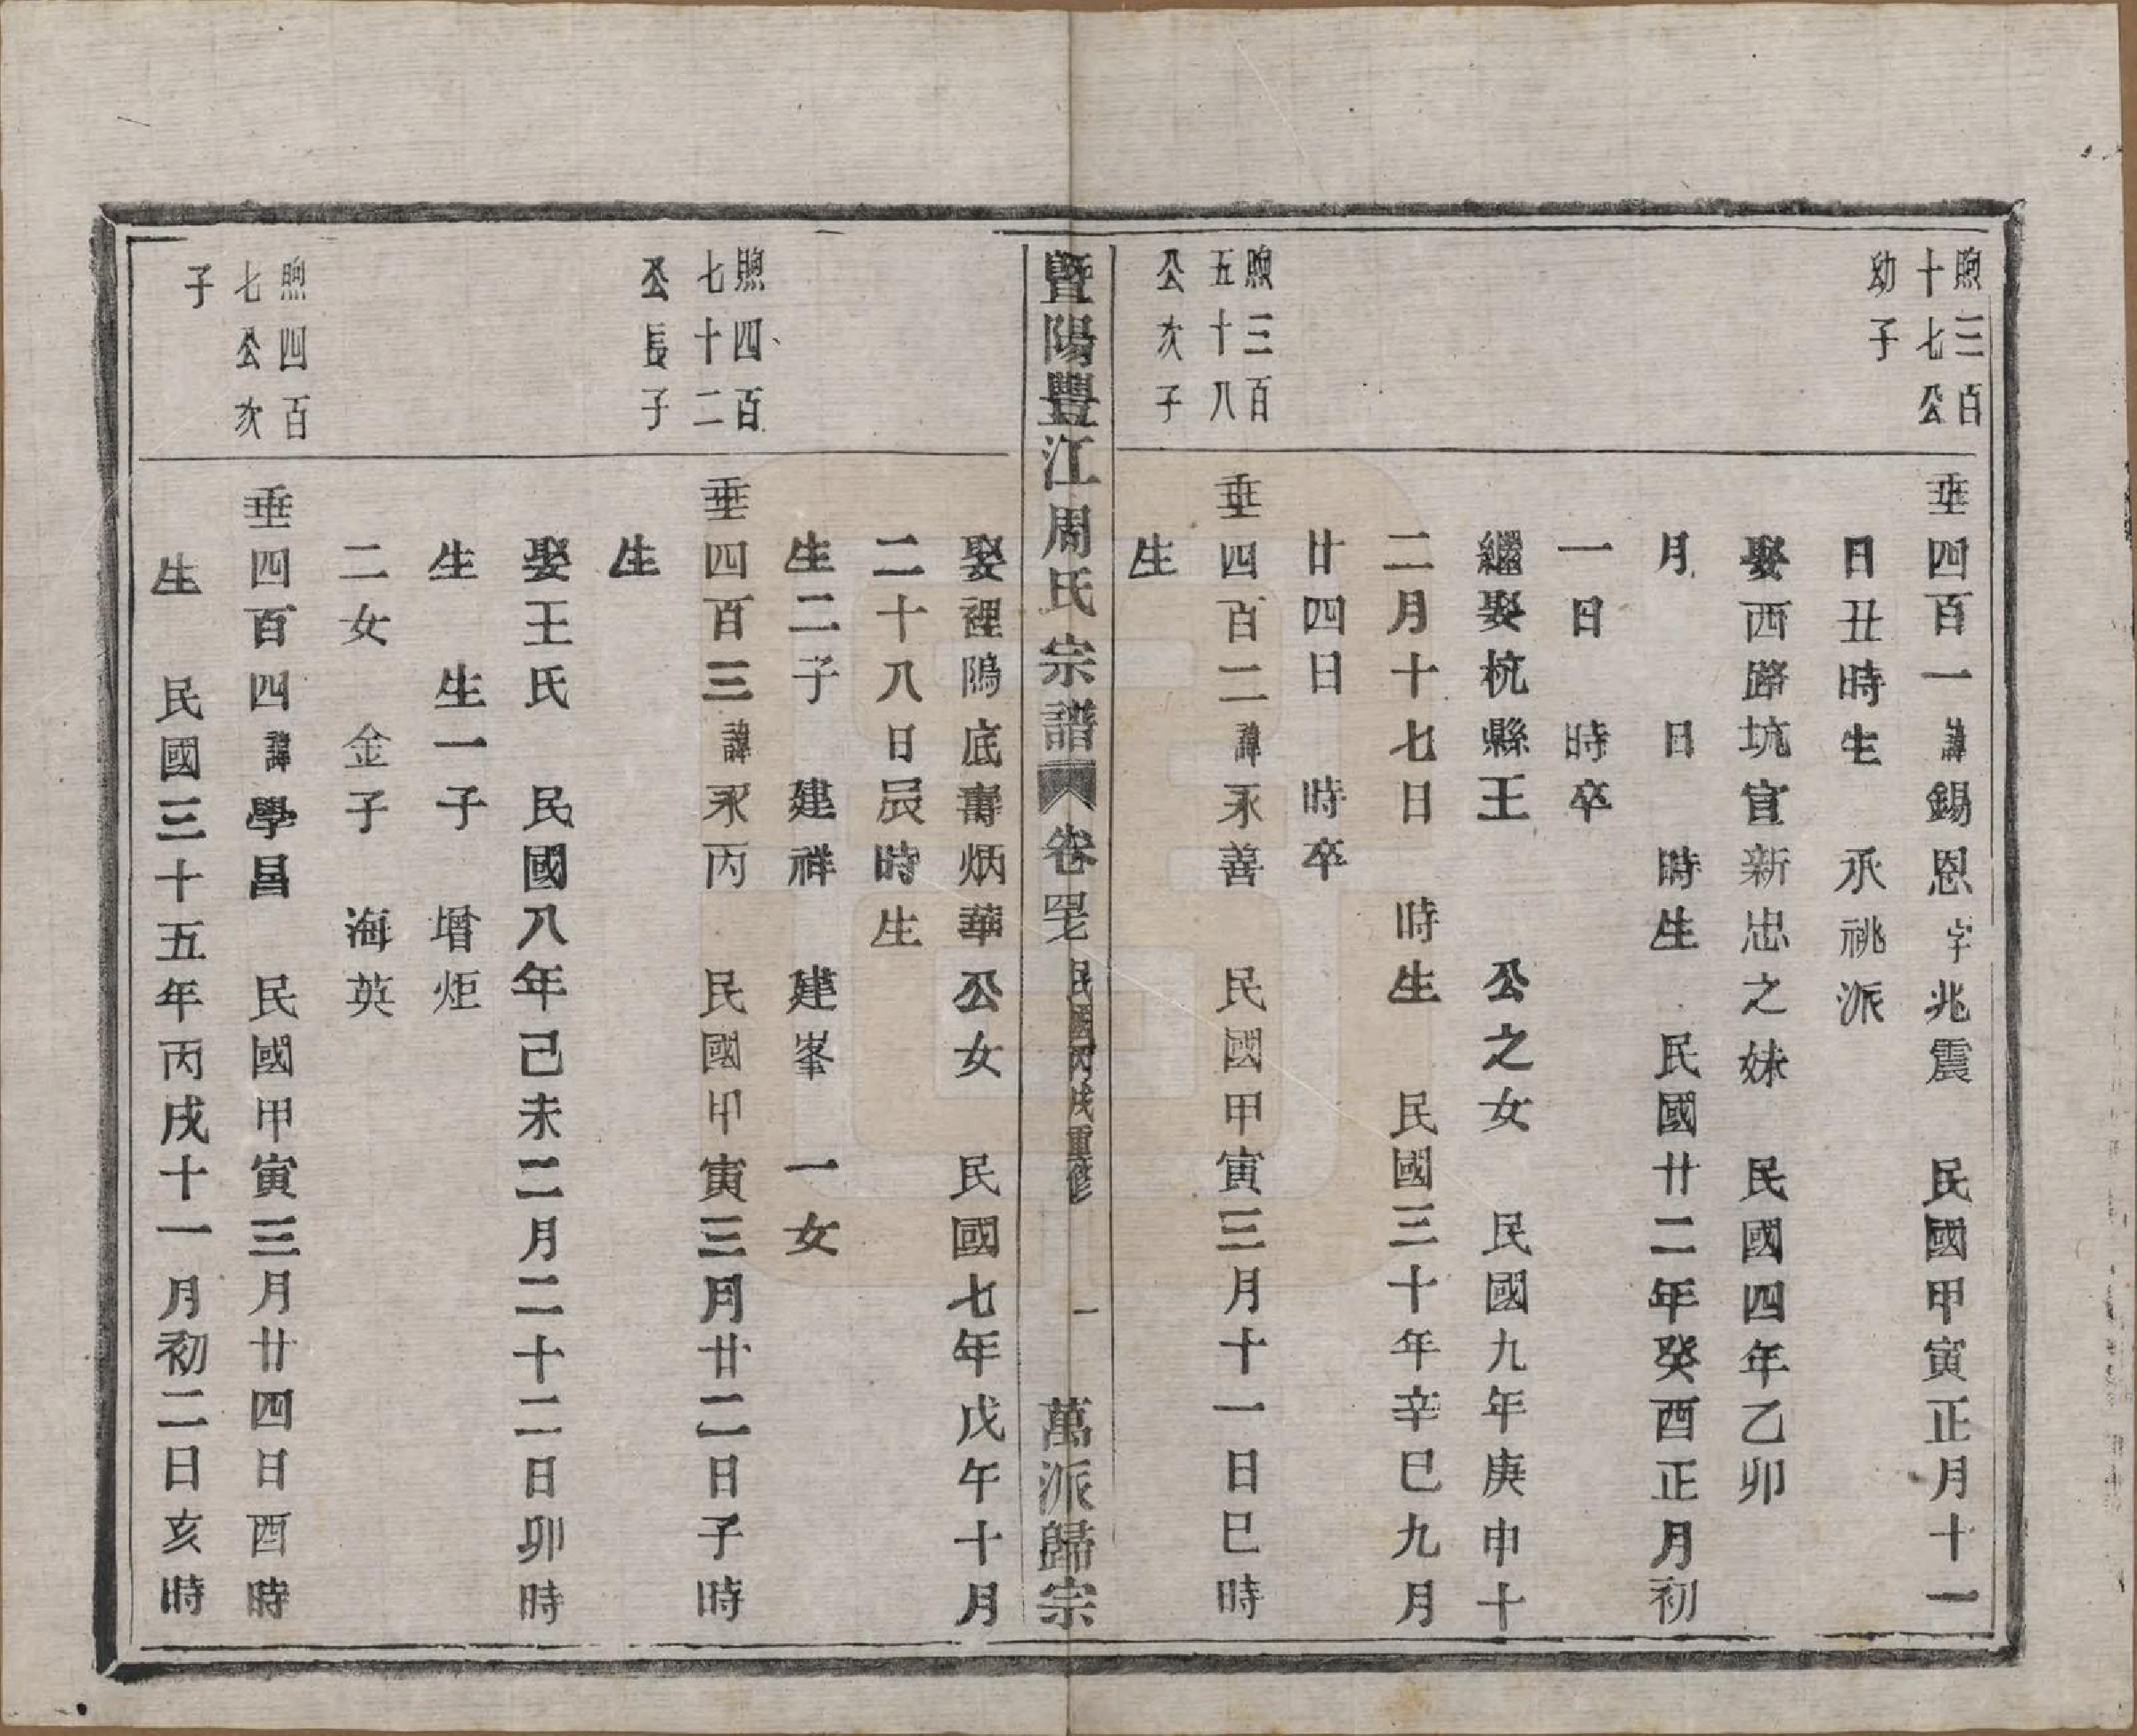 煦三百
十七公
幼子
垂四百一諱錫恩字兆震　民國甲寅正月十一
日丑時生　承祧派
娶西路坑官新忠之妹　民國四年乙卯
月　日　時生　民國廿二年癸酉正月初
一日　時卒
繼娶杭縣王　公之女　民國九年庚申十
二月十七日　時生　民國三十年辛巳九月
廿四日　時卒
煦三百
五十八
公次子
垂四百二諱永善　民國甲寅三月十一日巳時
生
暨陽豐江周氏宗譜　卷　民國丙戌重修　一　萬派歸宗
娶裡隖底壽炳華公女　民國七年戊午十月
二十八日辰時生
生二子　建祥　建峯　一女
煦四百
七十二
公長子
垂四百三諱永丙　民國甲寅三月廿二日子時
生
娶王氏　民國八年己未二月二十二日卯時
生　生一子　增炬
二女　金子　海英
煦四百
七公次
子
垂四百四諱學昌　民國甲寅三月廿四日酉時
生　民國三十五年丙戌十一月初二日亥時